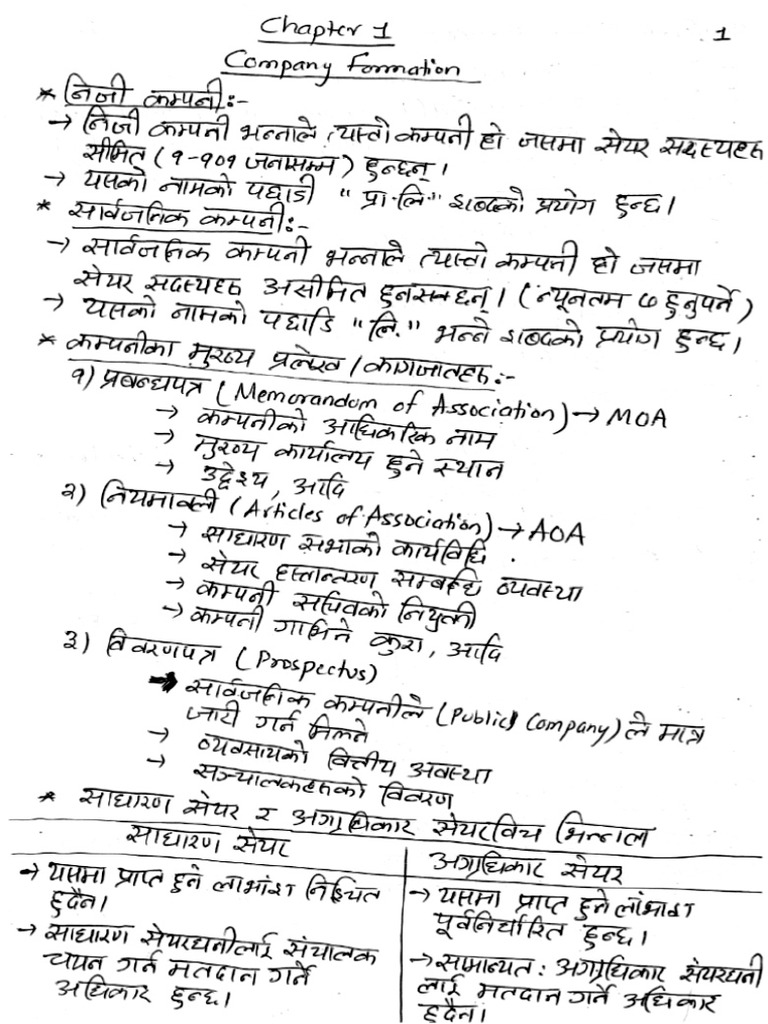 Chapter 1
1
Company Formation
* निजी कम्पनी:-
→ निजी कम्पनी भन्नाले त्यस्तो कम्पनी हो जसमा सेयर सदस्यहरु
सीमित (१-१०१ जनासम्म) हुन्छन्।
→ यसको नामको पछाडी "प्रा.लि." शब्दको प्रयोग हुन्छ।
* सार्वजनिक कम्पनी:-
→ सार्वजनिक कम्पनी भन्नाले त्यस्तो कम्पनी हो जसमा
सेयर सदस्यहरु असीमित हुनसक्छन्। (न्यूनतम ७ हुनुपर्ने)
→ यसको नामको पछाडि "लि." भन्ने शब्दको प्रयोग हुन्छ।
* कम्पनीका मुख्य प्रलेख/कागजातहरु:-
१) प्रबन्धपत्र (Memorandom of Association) → MOA
→ कम्पनीको आधिकारिक नाम
→ मुख्य कार्यालय हुने स्थान
→ उद्देश्य, आदि
२) नियमावली (Articles of Association) → AOA
→ साधारण सभाको कार्यविधि
→ सेयर हस्तान्तरण सम्बन्धि व्यवस्था
→ कम्पनी सचिवको नियुक्ती
→ कम्पनी गाभिने कुरा, आदि
३) विवरणपत्र (Prospectus)
→ सार्वजनिक कम्पनीले (Public Company) ले मात्र
जारी गर्न मिल्ने
→ व्यवसायको वित्तीय अवस्था
→ सञ्चालकहरुको विवरण
* साधारण सेयर र अग्राधिकार सेयरविच भिन्नता
साधारण सेयर
→ यसमा प्राप्त हुने लाभांश निश्चित
हुदैन।
→ साधारण सेयरधनीलाई संचालक
चयन गर्न मतदान गर्ने
अधिकार हुन्छ।
अग्राधिकार सेयर
→ यसमा प्राप्त हुने लाभांश
पूर्वनिर्धारित हुन्छ।
→ सामान्यत: अग्राधिकार सेयरधनी
लाई मतदान गर्ने अधिकार
हुदैन।